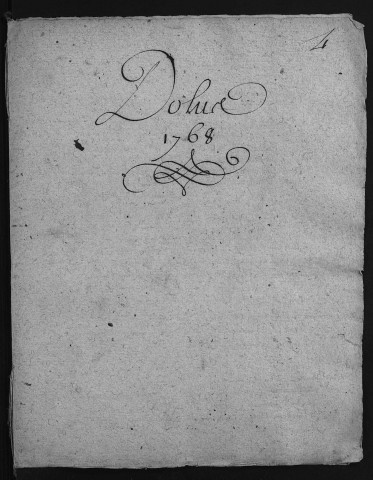 4
Dolus
1768